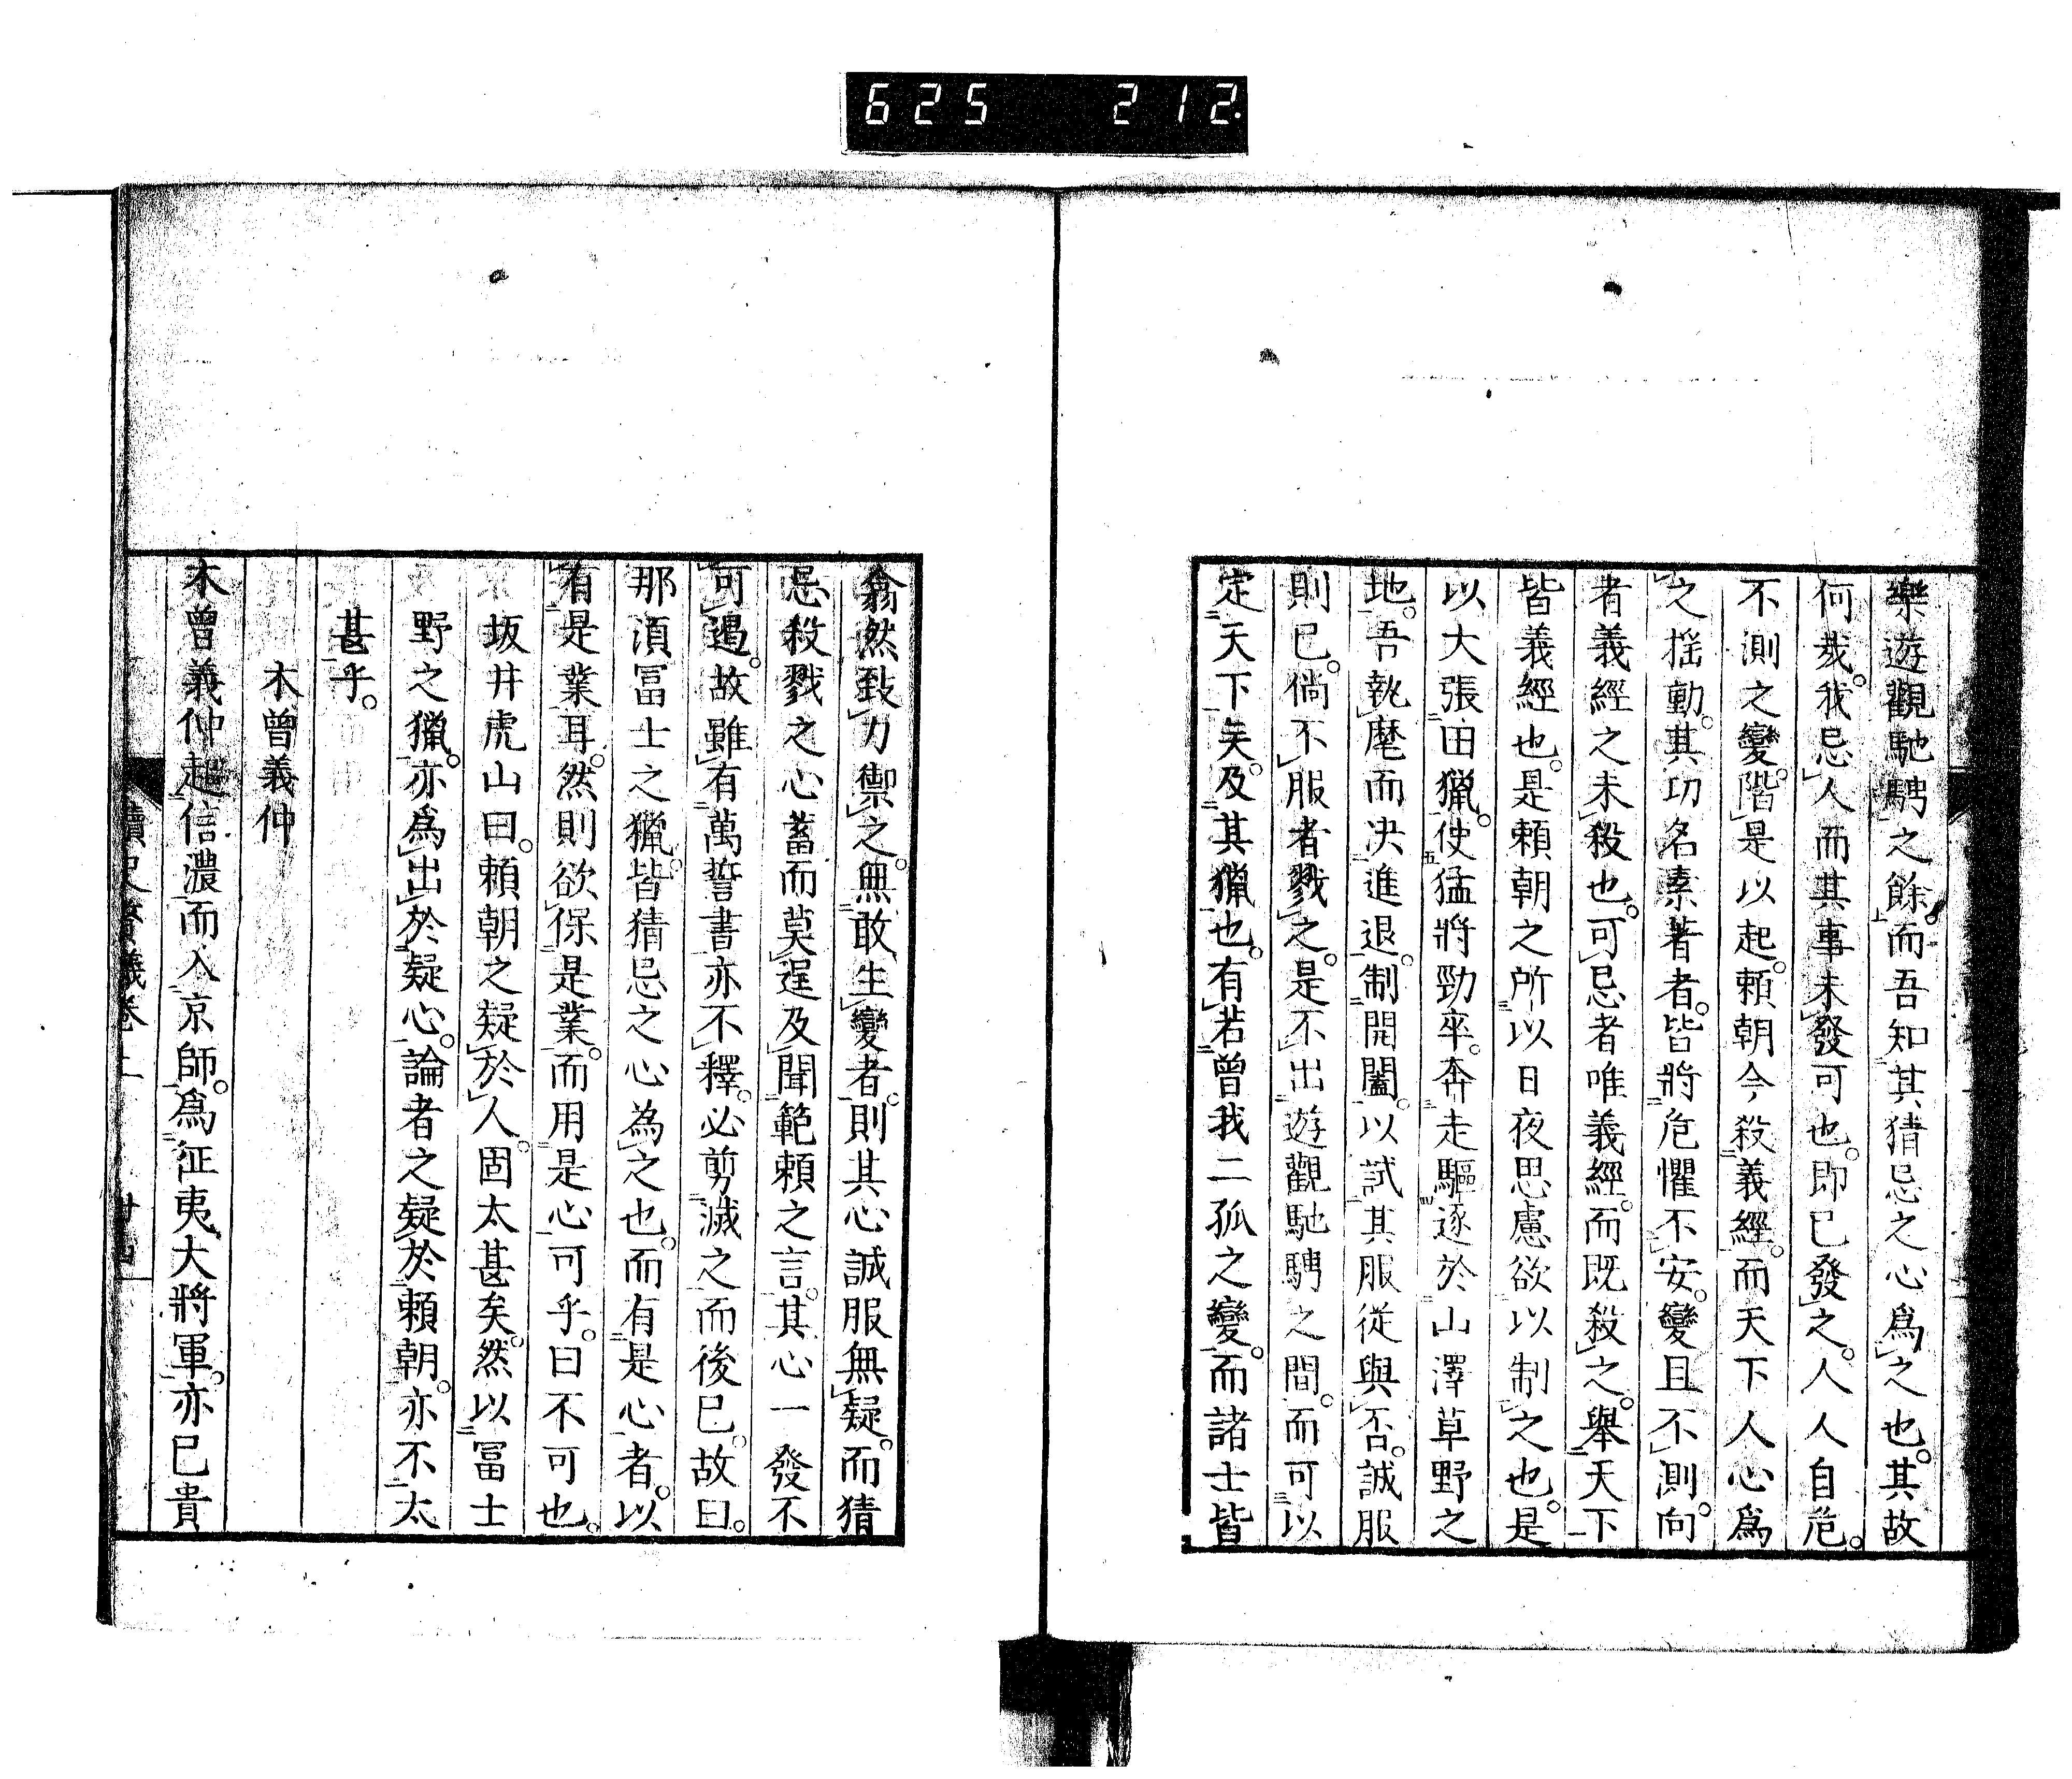 625 212.
樂遊觀馳騁之餘。而吾知其猜忌之心爲之也。其故
何哉。我忌人而其事未發可也。即已發之。人人自危。
不測之變。階是以起。頼朝今殺義經。而天下人心爲
之揺動。其功名素著者。皆將危懼不安。變且不測。向
者義經之未殺也。可忌者唯義經。而既殺之。舉天下
皆義經也。是頼朝之所以日夜思慮欲以制之也。是
以大張田獵。使猛將勁卒。奔走驅逐於山澤草野之
地。吾執麾而决進退。制開闔。以試其服從與否。誠服
則已。倘不服者戮之。是不出遊觀馳騁之間。而可以
定天下矣。及其獵也。有若曾我二孤之變。而諸士皆
翕然致力禦之。無敢生變者。則其心誠服無疑。而猜
忌殺戮之心蓄而莫逞。及聞範頼之言。其心一發不
可遏。故雖有萬誓書亦不釋。必剪滅之而後已。故曰。
那湏冨士之獵。皆猜忌之心為之也。而有是心者。以
有是業耳。然則欲保是業。而用是心。可乎。曰不可也。
坂井虎山曰。頼朝之疑於人。固太甚矣。然以冨士
野之獵。亦爲出於疑心。論者之疑於頼朝。亦不太
甚乎。
木曾義仲
木曾義仲起信濃而入京師。爲征夷大將軍。亦已貴
讀史贅議卷上 廿四